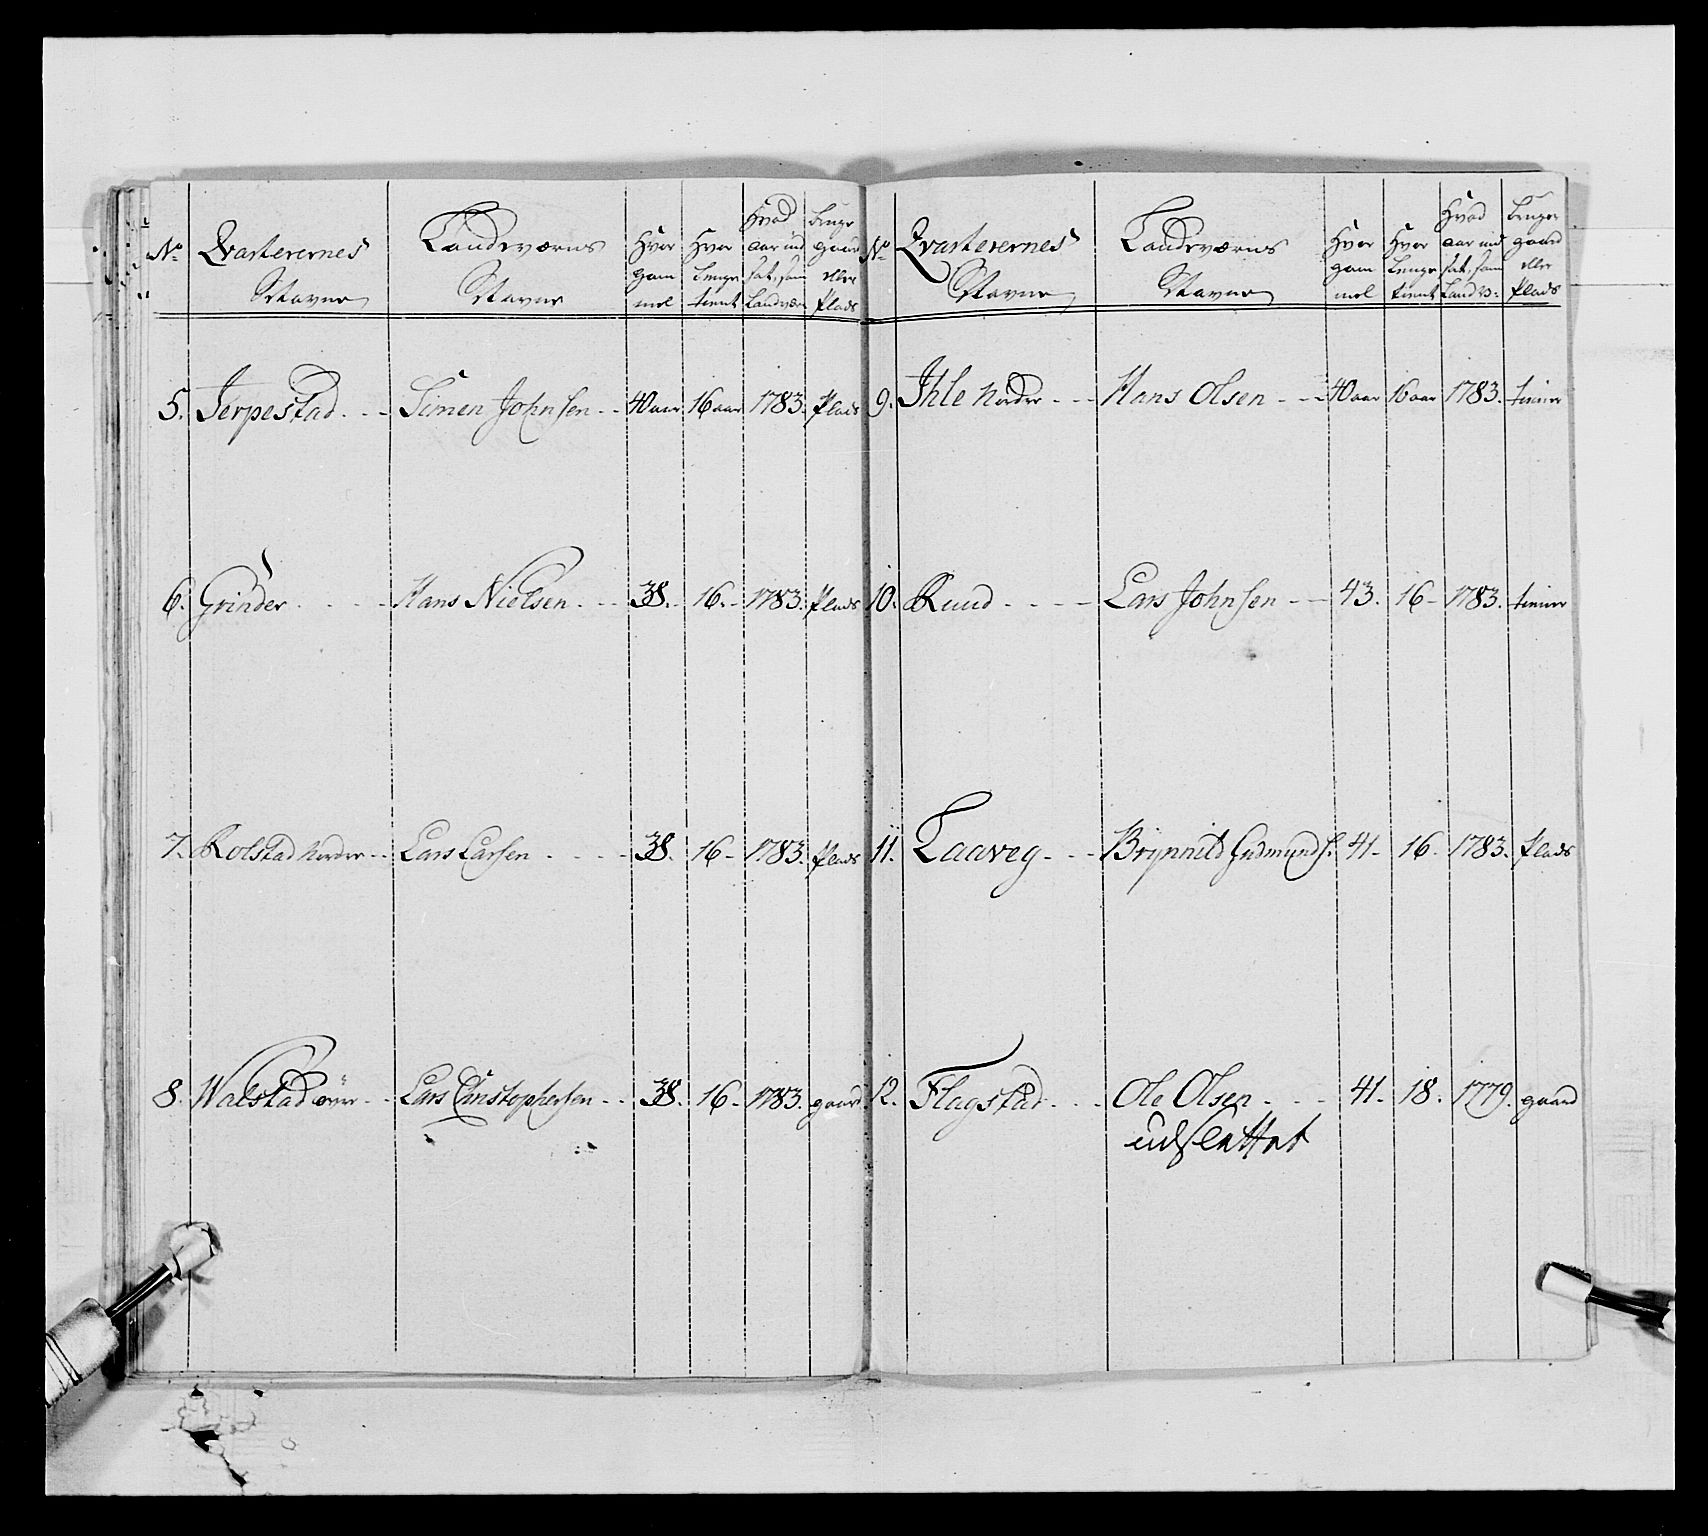 No Qvarterernes Navne Landeværns Navne Hvor gam mel Hvor lenge tient Hvad aar ind sat, som Landvær bruger gaard eller Plads
5. Jerpestad Simen Johnsen 40 aar 16 aar 1783. Plads
6. Grinder Hans Nielsen 38. 16. 1783. Plads
7. Rolstad Norder Lars Larsen 38. 16 1783. Plads
8. Walstad øvre Lars Christophersen 38. 16 1783. gaard
No Qvarterernes Navne Landeværns Navne Hvor gam mel Hvor lenge tient Hvad aar ind sat, som Land v: bruger gaard eller Plads
9. Ihle Nordre Hans Olsen 40 aar 16 aar 1783. tiener
10. Ruud Lars Johnsen 43. 16 1783. tiener
11. Taaveg Brynnild Gudmunds: 41 16 1783. Plads
12. Flagstad Ole Olsen 41 18. 1779. gaard
udslettet